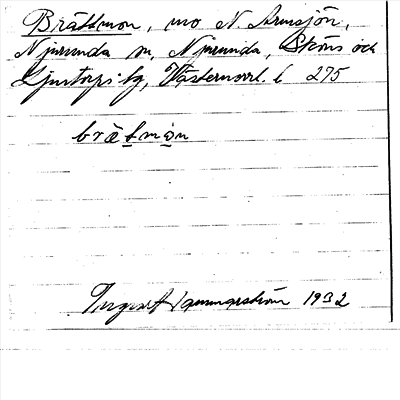 Brättmon, mo N. Armsjön,
Njurunda sn, Njurunda, Sköns och
Ljustorps tg, Västernorrl. l. 295
brätmòn
Ingwar Hammarström 1932